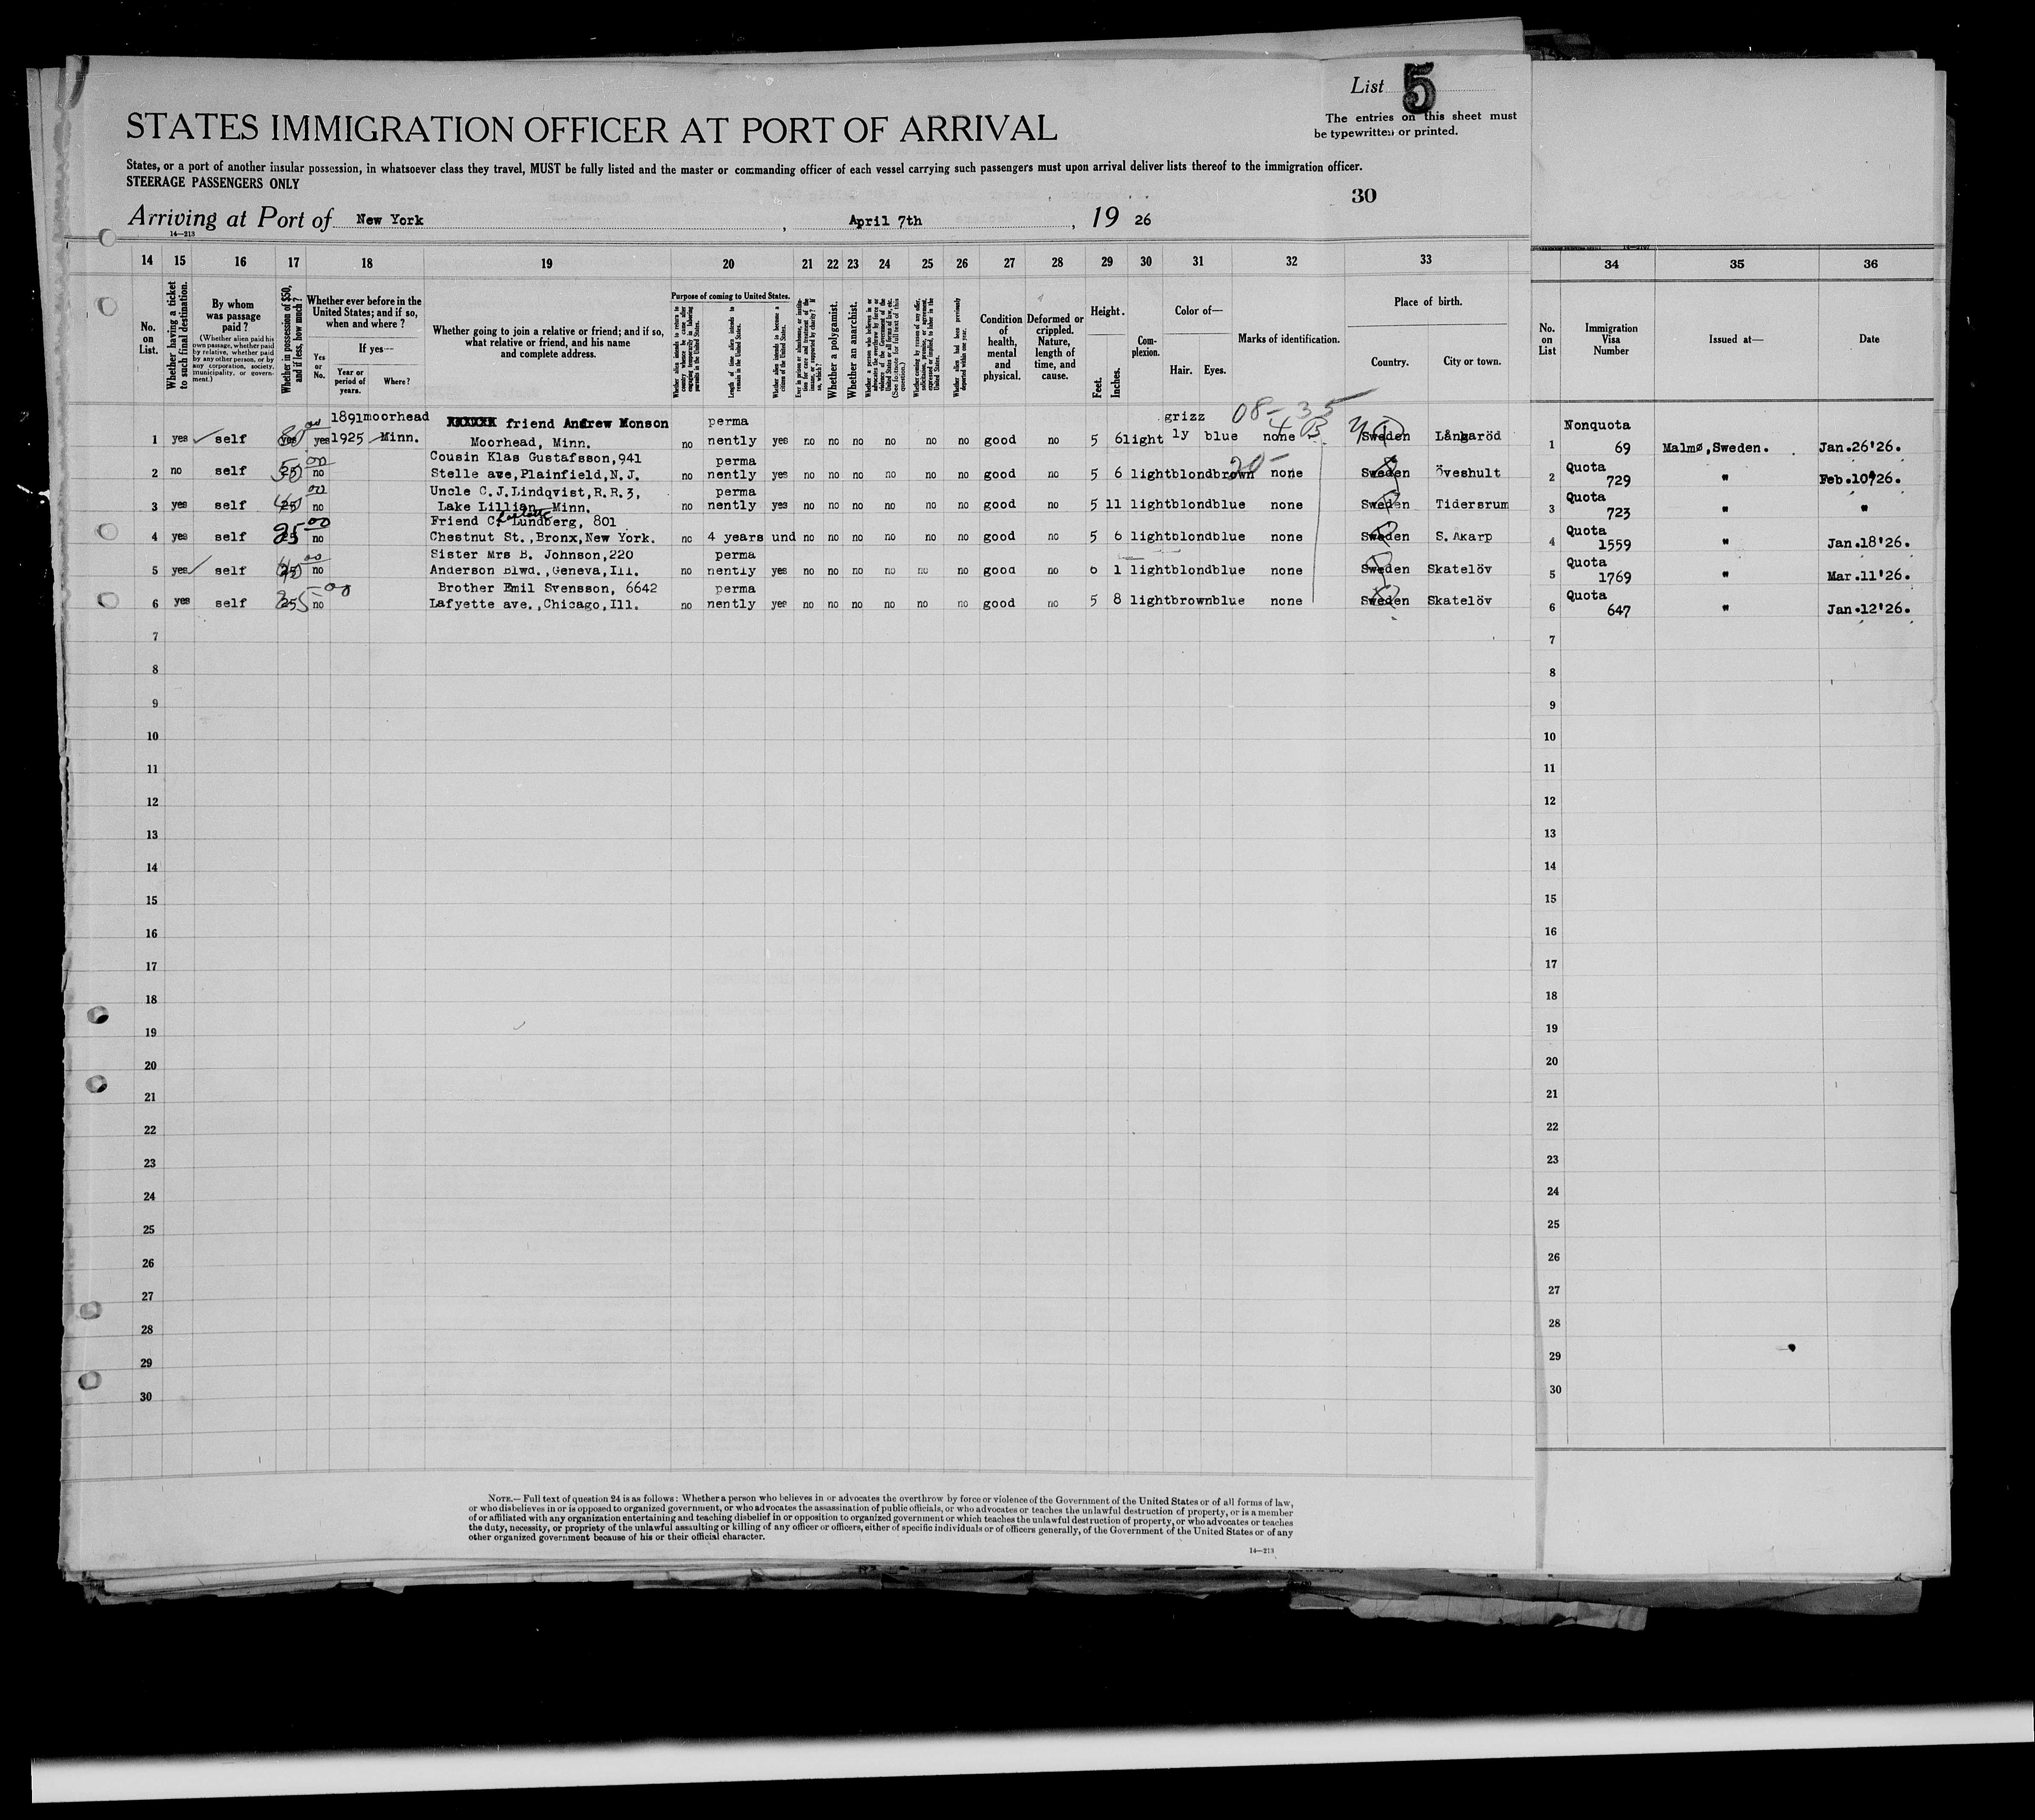 List 5
The entries on this sheet must
be typewritten or printed.
STATES IMMIGRATION OFFICER AT PORT OF ARRIVAL
States, or a port of another insular possession, in whatsoever class they travel, MUST be fully listed and the master or commanding officer of each vessel carrying such passengers must upon arrival deliver lists thereof to the immigration officer.
STEERAGE PASSENGERS ONLY
30
Arriving at Port of New York, April 7th, 19 26
14—213
14 15 16 17 18 19 20 21 22 23 24 25 26 27 28 29 30 31 32 33 34 35 36
No. on List.
Whether having a ticket to such final destination.
By whom was passage paid?
(Whether alien paid his own passage, whether paid by relative, whether paid by any other person, or by any corporation, society, municipality, or government.)
Whether in possession of $50, and if less, how much?
Whether ever before in the United States; and if so, when and where?
Yes or No.
If yes—
Year or period of years.
Where?
Whether going to join a relative or friend; and if so, what relative or friend, and his name and complete address.
Purpose of coming to United States.
Length of time alien intends to remain in the United States.
Whether alien intends to become a citizen of the United States.
Whether a polygamist.
Whether an anarchist.
Whether alien had been previously deported within one year.
Condition of health, mental and physical.
Deformed or crippled. Nature, length of time, and cause.
Height.
Feet.
Inches.
Complexion.
Color of—
Hair. Eyes.
Marks of identification.
Place of birth.
Country. City or town.
No. on List
Immigration Visa Number
Issued at—
Date
1891 moorhead friend Andrew Monson perma grizz 08-35 Nonquota
1 yes self yes yes 1925 Minn. Moorhead, Minn. no nently yes no no no no no good no 5 6 light ly blue none Sweden Långaröd 1 69 Malmø, Sweden. Jan.26'26.
Cousin Klas Gustafsson, 941 perma Quota
2 no self 50 no Stelle ave, Plainfield, N.J. no nently yes no no no no no good no 5 6 light blond brown none Sweden Öveshult 2 729 " Feb.10'26.
Uncle C.J.Lindqvist, R.R.3, perma Quota
3 yes self 25 no Lake Lillian, Minn. no nently yes no no no no no good no 5 11 light blond blue none Sweden Tidersrum 3 723 " "
Friend C. Lundberg, 801 Quota
4 yes self 25 no Chestnut St., Bronx, New York. no 4 years und no no no no no good no 5 6 light blond blue none Sweden S. Akarp 4 1559 " Jan.18'26.
Sister Mrs B. Johnson, 220 perma Quota
5 yes self no Anderson Blwd., Geneva, Ill. no nently yes no no no no no good no 6 1 light blond blue none Sweden Skatelöv 5 1769 " Mar.11'26.
Brother Emil Svensson, 6642 perma Quota
6 yes self no Lafyette ave., Chicago, Ill. no nently yes no no no no no good no 5 8 light brown blue none Sweden Skatelöv 6 647 " Jan.12'26.
7 7
8 8
9 9
10 10
11 11
12 12
13 13
14 14
15 15
16 16
17 17
18 18
19 19
20 20
21 21
22 22
23 23
24 24
25 25
26 26
27 27
28 28
29 29
30 30
NOTE.—Full text of question 24 is as follows: Whether a person who believes in or advocates the overthrow by force or violence of the Government of the United States or of all forms of law,
or who disbelieves in or is opposed to organized government, or who advocates the assassination of public officials, or who advocates or teaches the unlawful destruction of property, or is a member
of or affiliated with any organization entertaining and teaching disbelief in or opposition to organized government or which teaches the unlawful destruction of property, or who advocates or teaches
the duty, necessity, or propriety of the unlawful assaulting or killing of any officer or officers, either of specific individuals or of officers generally, of the Government of the United States or of any
other organized government because of his or their official character.
14—213